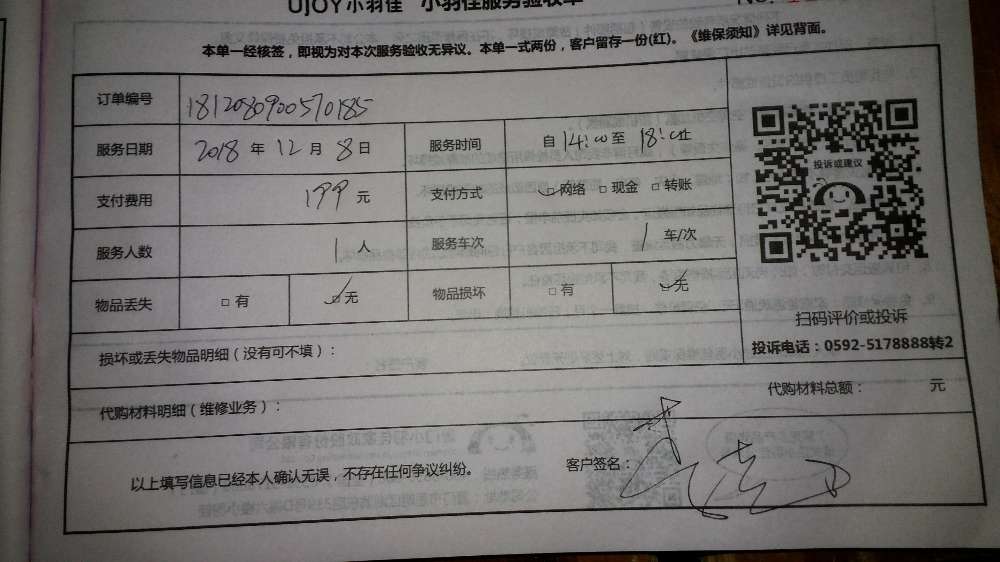 UJOY小羽佳 小羽佳服务验收单
No.
本单一经核签，即视为对本次服务验收无异议。本单一式两份，客户留存一份(红)。《维保须知》详见背面。
订单编号 181208900570185
服务日期 2018 年 12 月 8 日 服务时间 自 14:00 至 18:00 止
支付费用 199 元 支付方式 网络 □ 现金 □ 转账
服务人数 1 人 服务车次 1 车/次
物品丢失 □ 有 无 物品损坏 □ 有 无
投诉或建议
扫码评价或投诉
投诉电话：0592-5178888转2
损坏或丢失物品明细（没有可不填）：
代购材料明细（维修业务）： 代购材料总额： 元
以上填写信息已经本人确认无误，不存在任何争议纠纷。 客户签名：